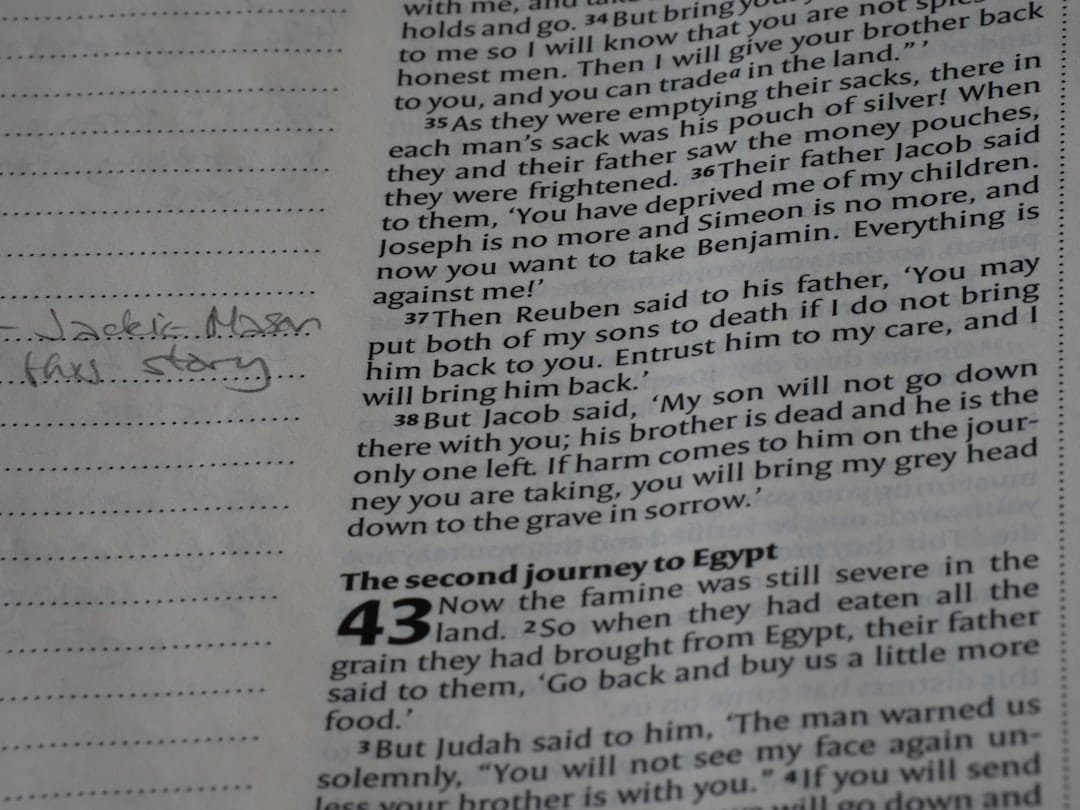 - Jackie Mason
this story
with me, and take
holds and go. 34 But bring
to me so I will know that you are not spies
honest men. Then I will give your brother back
to you, and you can tradeᵃ in the land.” ’
35 As they were emptying their sacks, there in
each man’s sack was his pouch of silver! When
they and their father saw the money pouches,
they were frightened. 36 Their father Jacob said
to them, ‘You have deprived me of my children.
Joseph is no more and Simeon is no more, and
now you want to take Benjamin. Everything is
against me!’
37 Then Reuben said to his father, ‘You may
put both of my sons to death if I do not bring
him back to you. Entrust him to my care, and I
will bring him back.’
38 But Jacob said, ‘My son will not go down
there with you; his brother is dead and he is the
only one left. If harm comes to him on the jour-
ney you are taking, you will bring my grey head
down to the grave in sorrow.’
The second journey to Egypt
43 Now the famine was still severe in the
land. 2 So when they had eaten all the
grain they had brought from Egypt, their father
said to them, ‘Go back and buy us a little more
food.’
3 But Judah said to him, ‘The man warned us
solemnly, “You will not see my face again un-
less your brother is with you.” 4 If you will send
will go down and